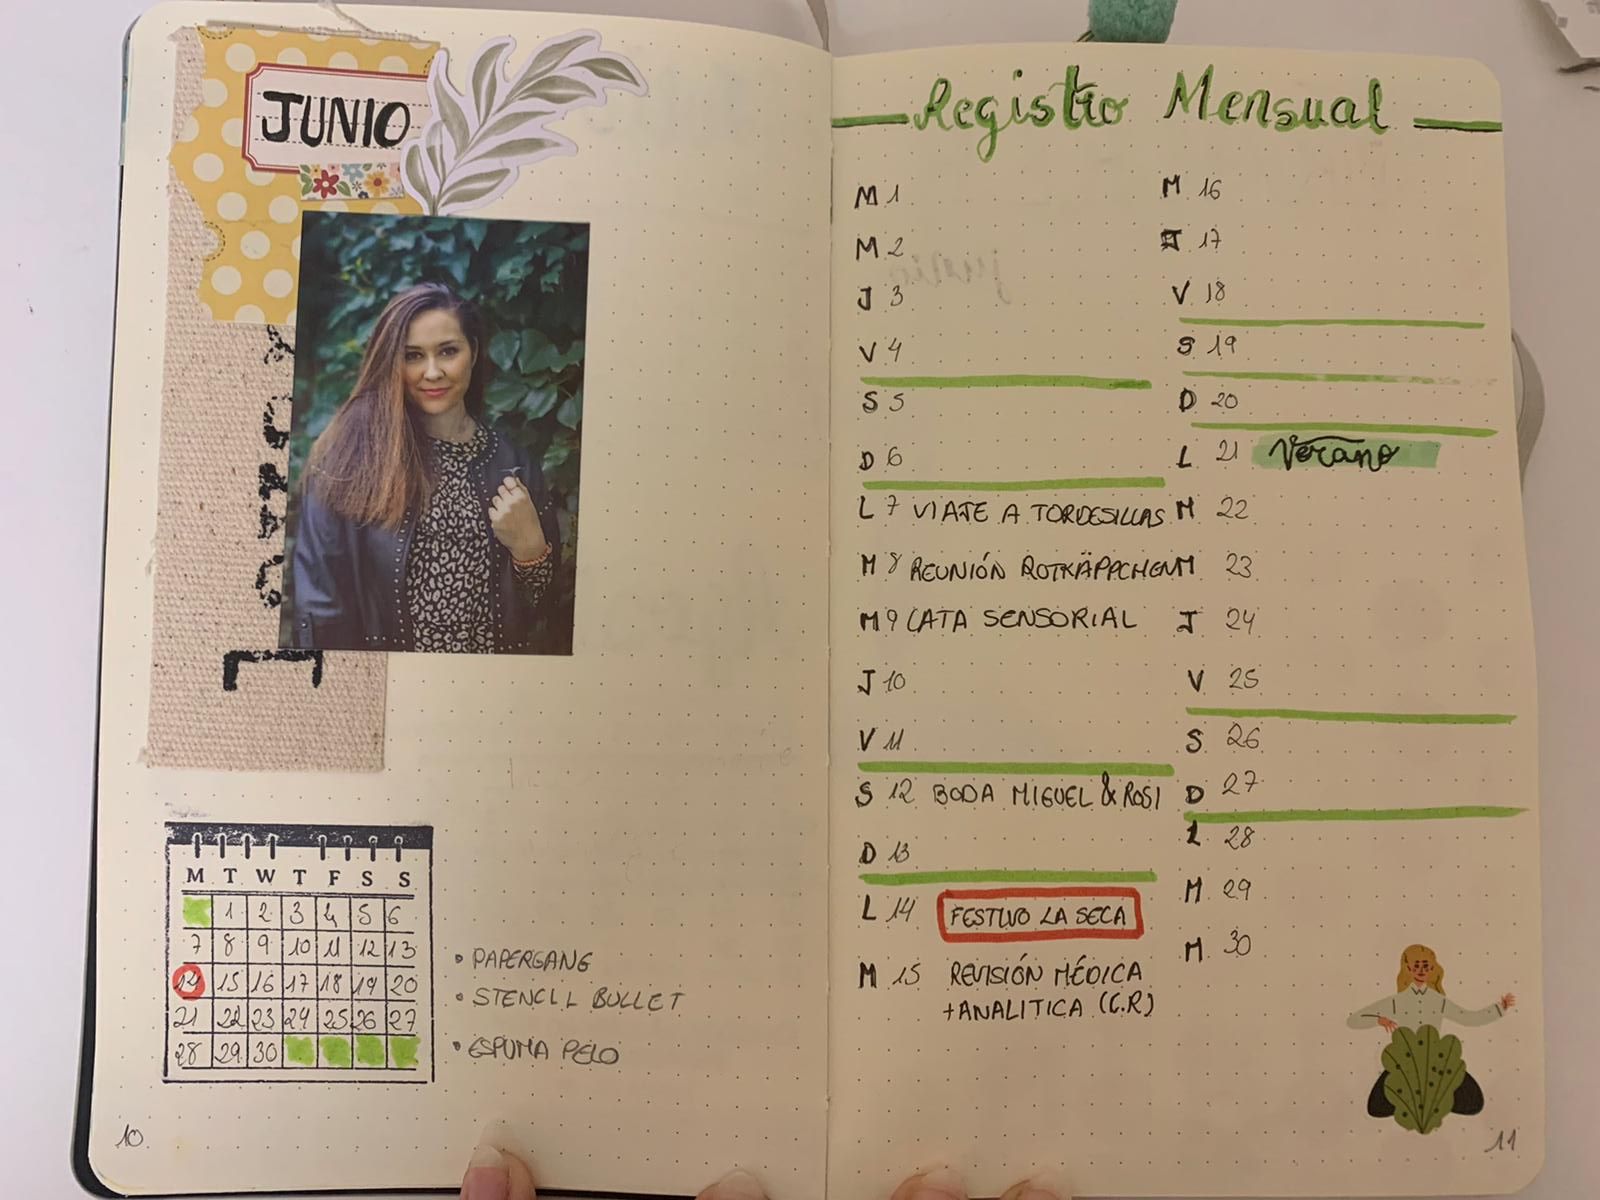 JUNIO
M T W T F S S
1 2 3 4 5 6
7 8 9 10 11 12 13
14 15 16 17 18 19 20
21 22 23 24 25 26 27
28 29 30
• PAPERGANG
• STENCIL BULLET
• ESPUMA PELO
10
Registro Mensual
M 1
M 2
J 3
V 4
S 5
D 6
L 7 VIAJE A TORDESILLAS
M 8 REUNIÓN ROTKÄPPCHEN
M 9 CATA SENSORIAL
J 10
V 11
S 12 BODA MIGUEL & ROSI
D 13
L 14 FESTIVO LA SECA
M 15 REVISIÓN MÉDICA
+ANALITICA (C.R)
M 16
J 17
V 18
S 19
D 20
L 21 Verano
M 22
M 23
J 24
V 25
S 26
D 27
L 28
M 29
M 30
11